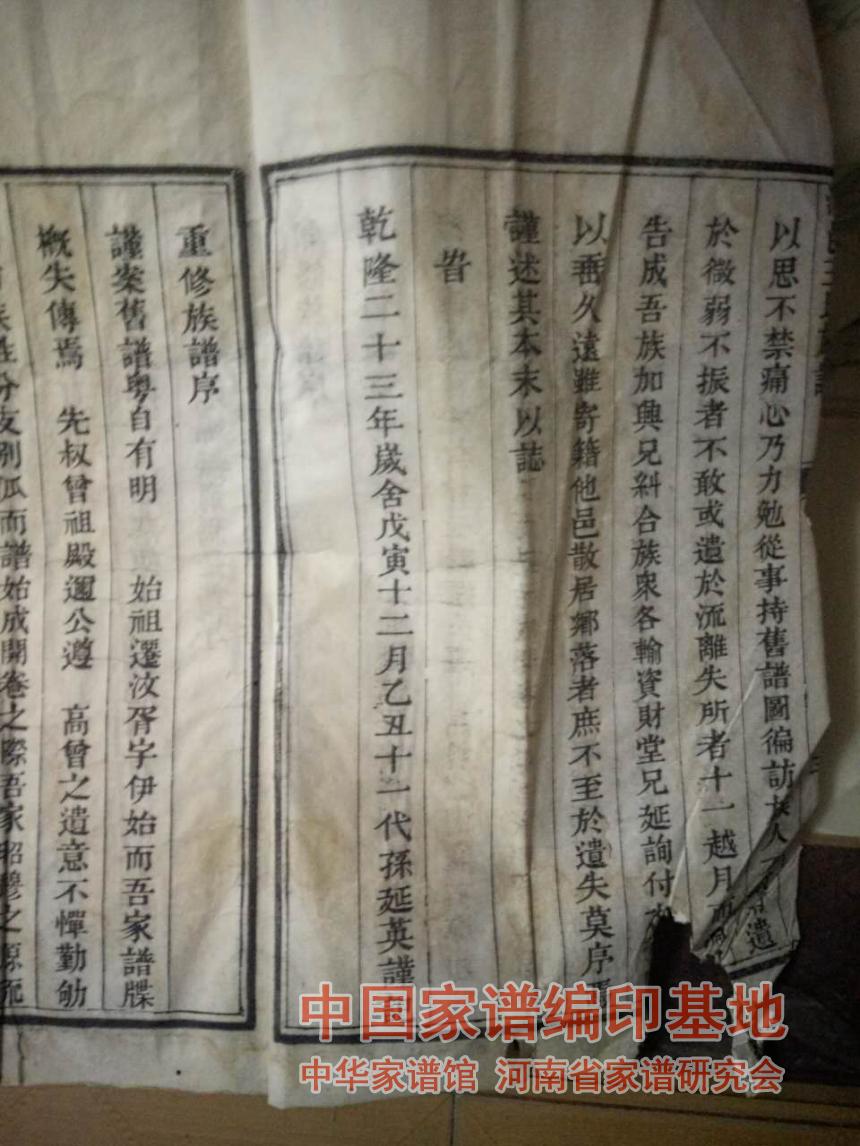 以思不禁痛心乃力勉從事持舊譜圖徧訪族人遺
於微弱不振者不敢或遺於流離失所者十一越月
告成吾族加興兄糾合族衆各輸資財堂兄延詢付
以垂久遠雖寄籍他邑散居鄉落者庶不至於遺失莫序
謹述其本末以誌
旹
乾隆二十三年歲舍戊寅十二月乙丑十一代孫延英謹
重修族譜序
謹案舊譜粵自有明 始祖遷汶胥宇伊始而吾家譜牒
概失傳焉 先叔曾祖殿邇公遵 高曾之遺意不憚勤劬
族姓分支別派而譜始成開卷之際吾家昭穆之源流
中国家谱编印基地
中华家谱馆 河南省家谱研究会